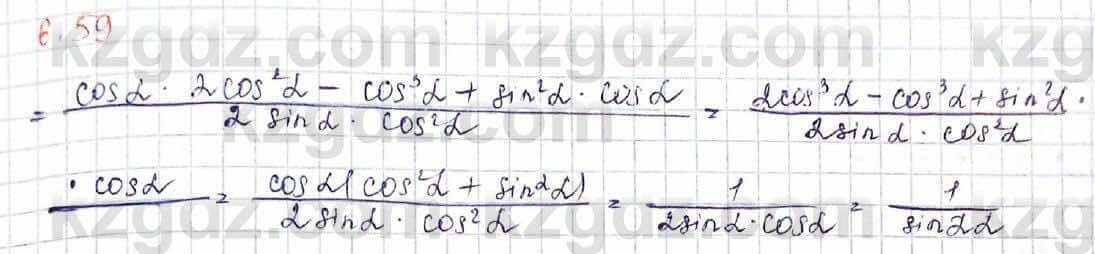 6.59
= (cosα · 2cos²α − cos³α + sin²α · cosα) / (2 sinα · cos²α) = (2cos³α − cos³α + sin²α ·) / (2sinα · cos²α)
· cosα / = (cosα(cos²α + sin²α)) / (2sinα · cos²α) = 1 / (2sinα · cosα) = 1 / sin2α
kzgdz.com kzgdz.com kzgdz
kzgdz.com
kzgdz.com kzgdz.com kzgdz